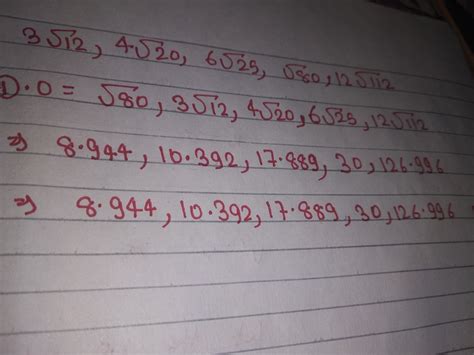 3√12, 4√20, 6√25, √80, 12√112
①.0 = √80, 3√12, 4√20, 6√25, 12√112
⇒ 8.944, 10.392, 17.889, 30, 126.996
⇒ 8.944, 10.392, 17.889, 30, 126.996